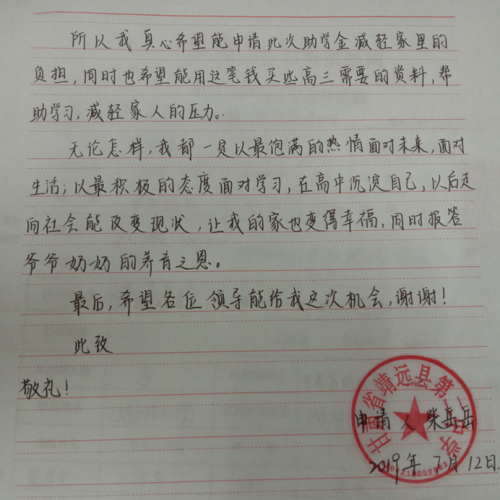 所以我真心希望能申请此次助学金减轻家里的
负担，同时也希望能用这笔钱买些高三需要的资料，帮
助学习，减轻家人的压力。
无论怎样，我都一定以最饱满的热情面对未来，面对
生活；以最积极的态度面对学习，在高中沉淀自己，以后走
向社会能改变现状，让我的家也变得幸福，同时报答
爷爷奶奶的养育之恩。
最后，希望各位领导能给我这次机会，谢谢！
此致
敬礼！
甘肃省靖远县第二中学
申请人 柴岳岳
2019年7月12日.